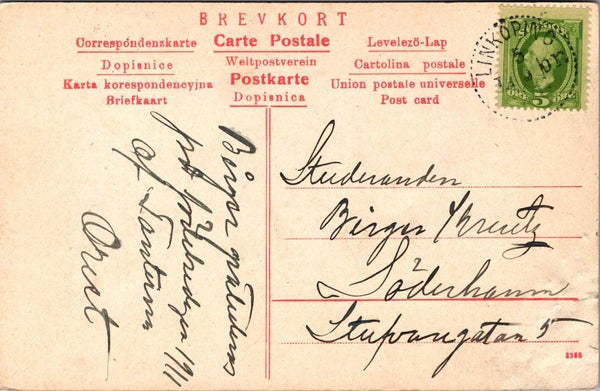 BREVKORT
Correspondenzkarte
Carte Postale
Levelező-Lap
Dopisnice
Weltpostverein
Cartolina postale
Karta korespondencyjna
Postkarte
Union postale universelle
Briefkaart
Dopisnica
Post card
LINKÖPING
5
Birger gratuleras
på
af Tanterna
Studeranden
Birger Kreutz
Söderhamn
Stufvaregatan 5
3169